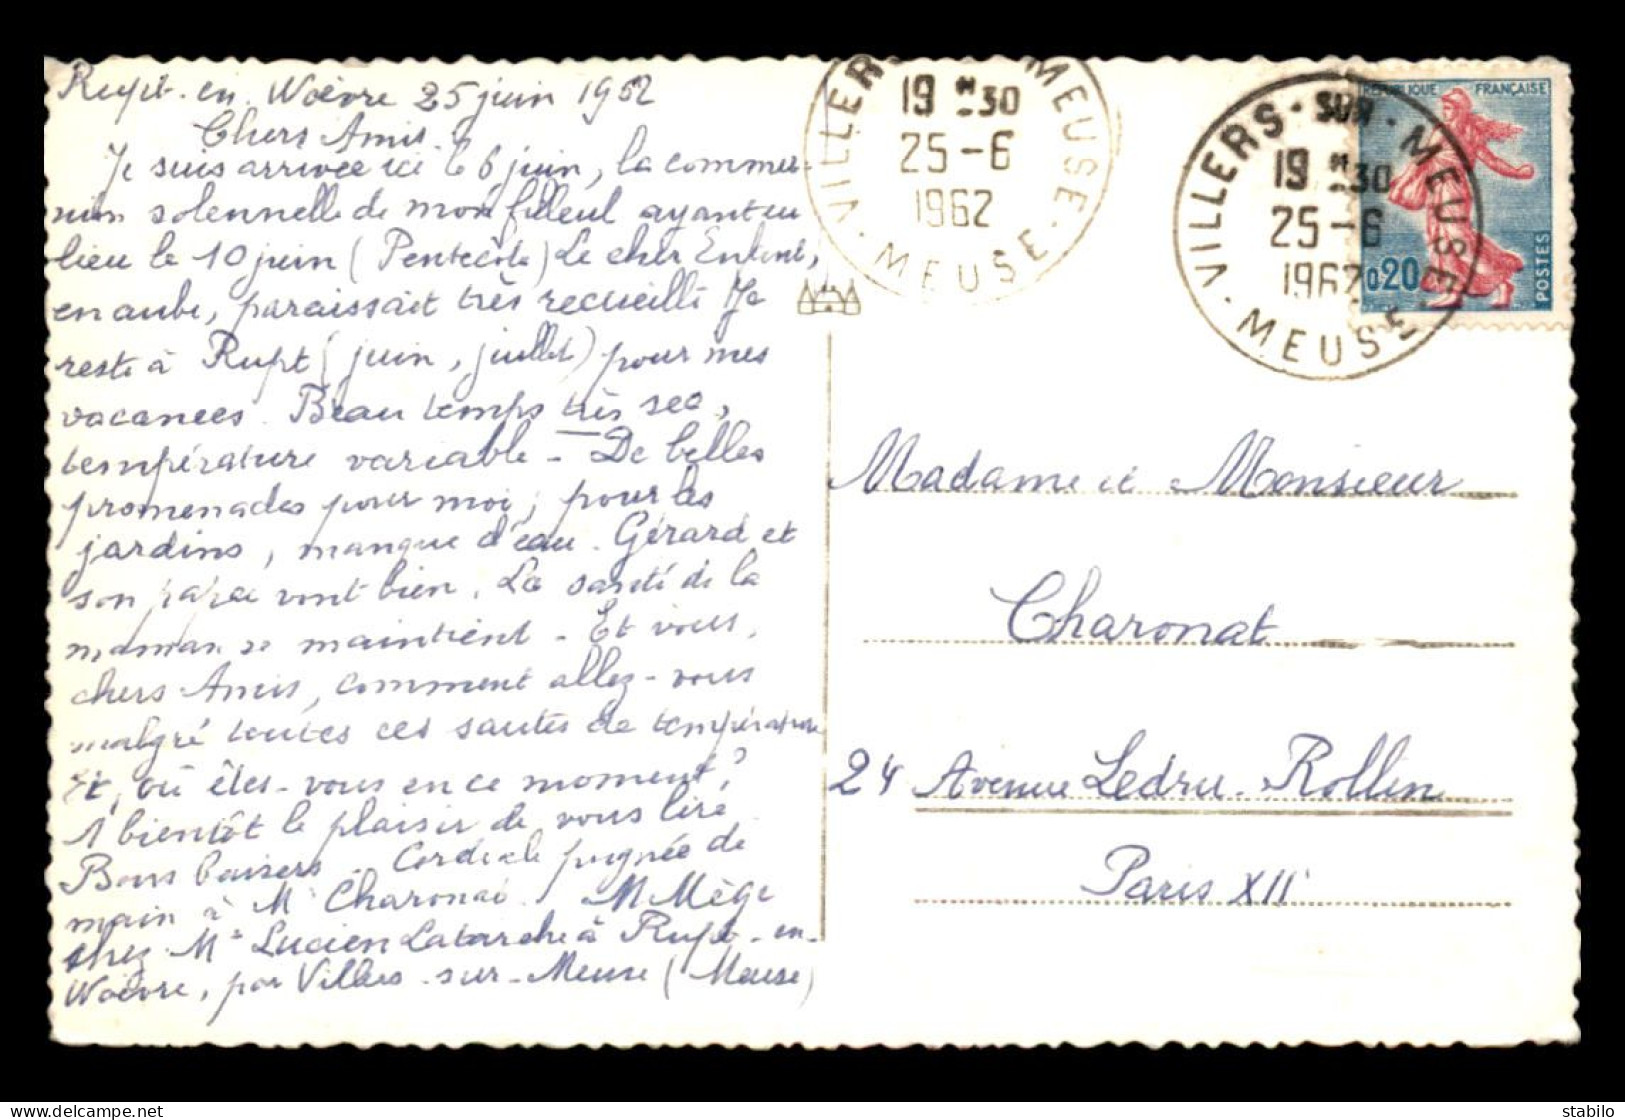 Rupt-en-Woëvre 25 juin 1962
Chers Amis.
Je suis arrivée ici le 6 juin, la commu-
nion solennelle de mon filleul ayant eu
lieu le 10 juin (Pentecôte) Le cher Enfant,
en aube, paraissait très recueilli. Je
reste à Rupt (juin, juillet) pour mes
vacances. Beau temps très sec,
température variable - De belles
promenades pour moi; pour les
jardins, manque d'eau. Gérard et
son papa vont bien. La santé de la
maman se maintient - Et vous,
chers Amis, comment allez-vous
malgré toutes ces sautes de température
Et, où êtes-vous en ce moment?
A bientôt le plaisir de vous lire
Bons baisers. Cordiale poignée de
main à Mr Charonat. M Mège
chez Mr Lucien Latarche à Rupt-en-
Woëvre, par Villers-sur-Meuse (Meuse)
VILLERS MEUSE
19 H 30
25-6
1962
· MEUSE ·
VILLERS-SUR-MEUSE
19 H 30
25-6
1962
· MEUSE
RÉPUBLIQUE FRANÇAISE
0,20
POSTES
Madame et Monsieur
Charonat
24 Avenue Ledru-Rollin
Paris XII
stabilo_fr - Delcampe.net